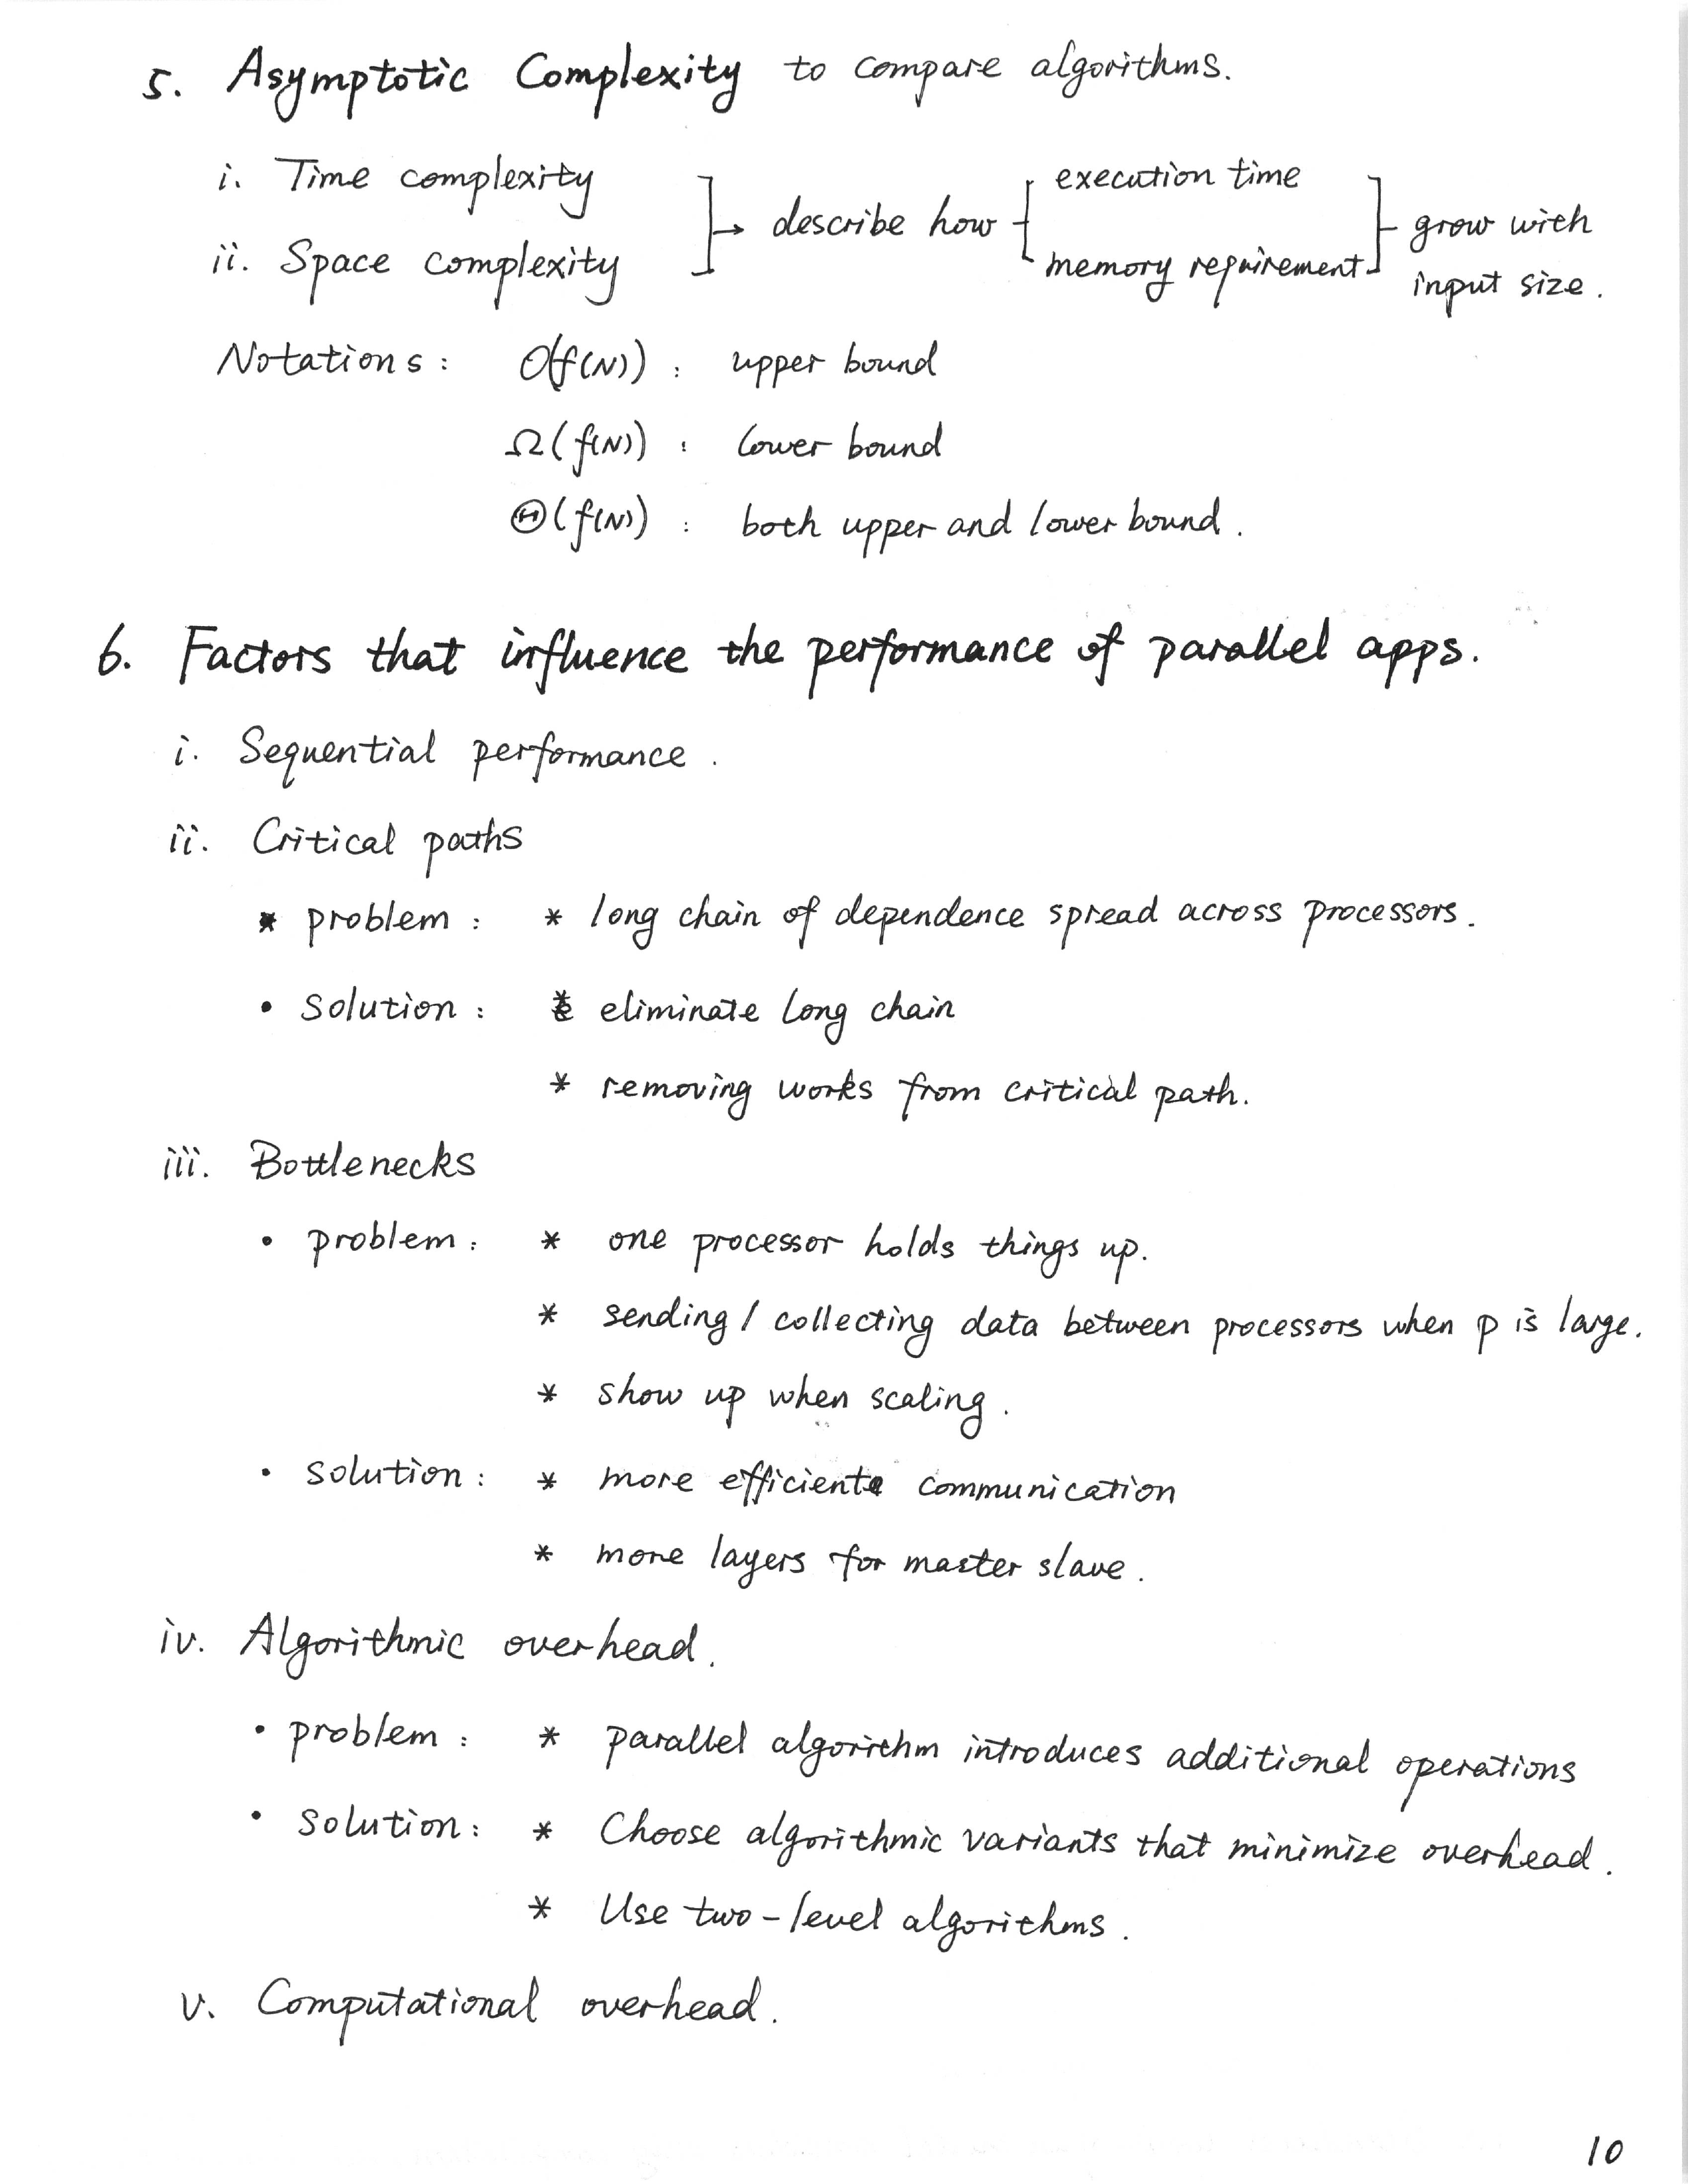 5. Asymptotic Complexity to compare algorithms.
i. Time complexity
ii. Space complexity
→ describe how
execution time
memory requirement
grow with
input size.
Notations : O(f(N)) : upper bound
Ω(f(N)) : lower bound
Θ(f(N)) : both upper and lower bound.
6. Factors that influence the performance of parallel apps.
i. Sequential performance.
ii. Critical paths
* problem : * long chain of dependence spread across processors.
• solution : * eliminate long chain
* removing works from critical path.
iii. Bottlenecks
• problem : * one processor holds things up.
* sending / collecting data between processors when p is large.
* show up when scaling.
• solution : * more efficient communication
* more layers for master slave.
iv. Algorithmic overhead.
• problem : * parallel algorithm introduces additional operations
• solution : * Choose algorithmic variants that minimize overhead.
* Use two-level algorithms.
v. Computational overhead.
10